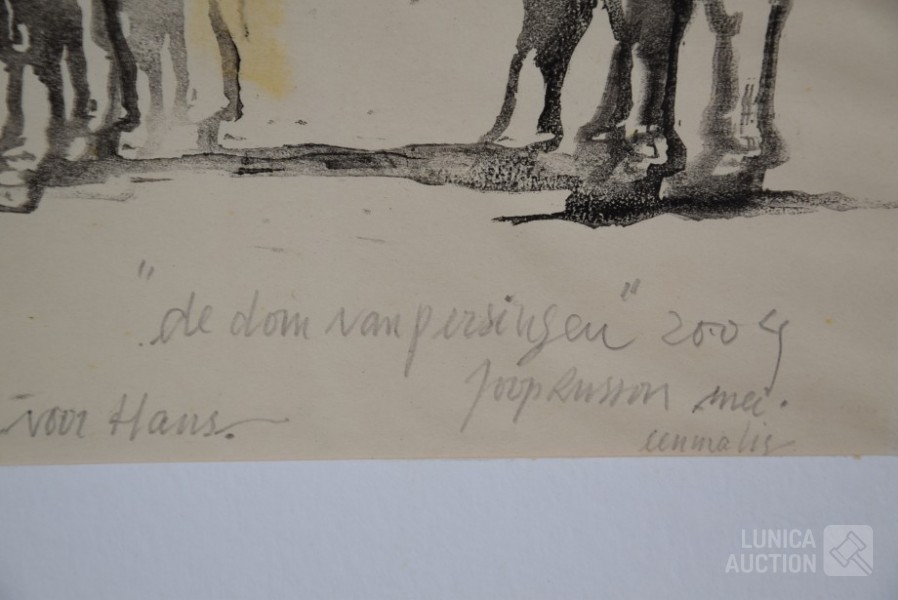 "de dom van persingen" 2004
Joop Russon mei.
voor Hans.
eenmalig
LUNICA
AUCTION